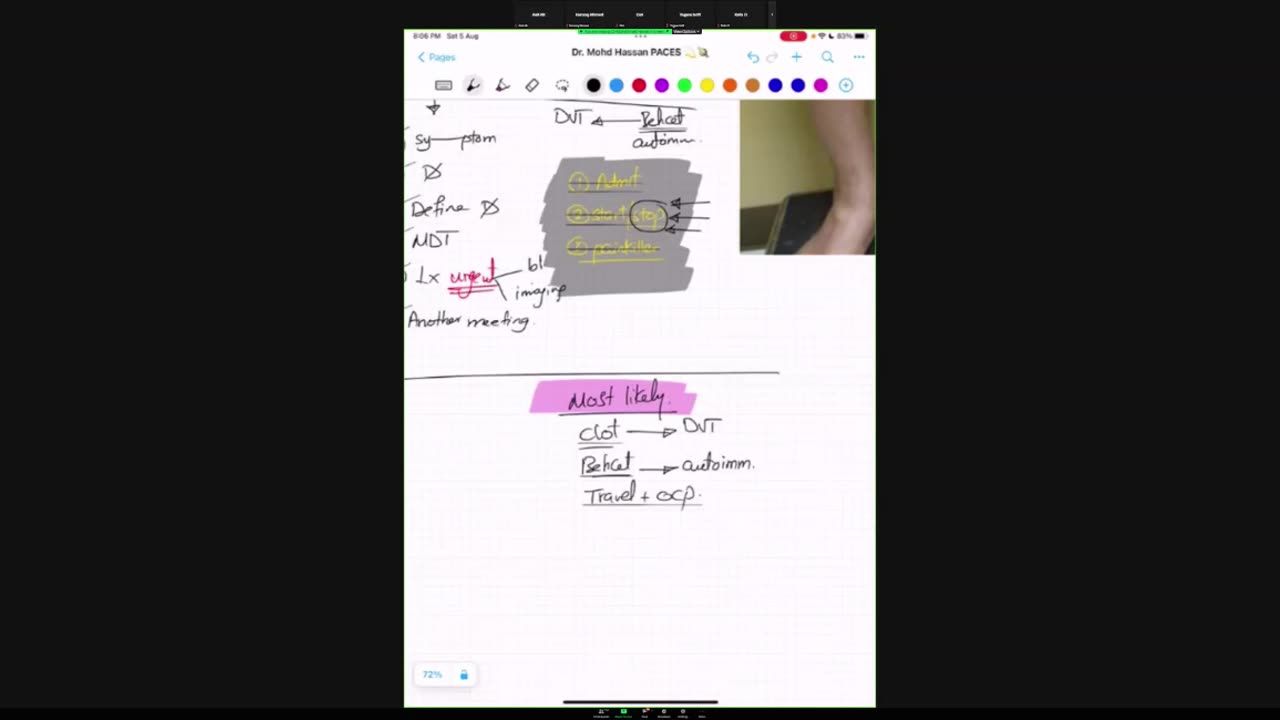 8:06 PM Sat 5 Aug
83%
Pages
Dr. Mohd Hassan PACES
DVT Behcet
autoimm.
Sy ptom
Define
MDT
Ix urgent bl
imaging
Another meeting.
① Admit
② start/stop
③ painkiller
Most likely.
Clot → DVT
Behcet → autoimm.
Travel + ocp.
72%